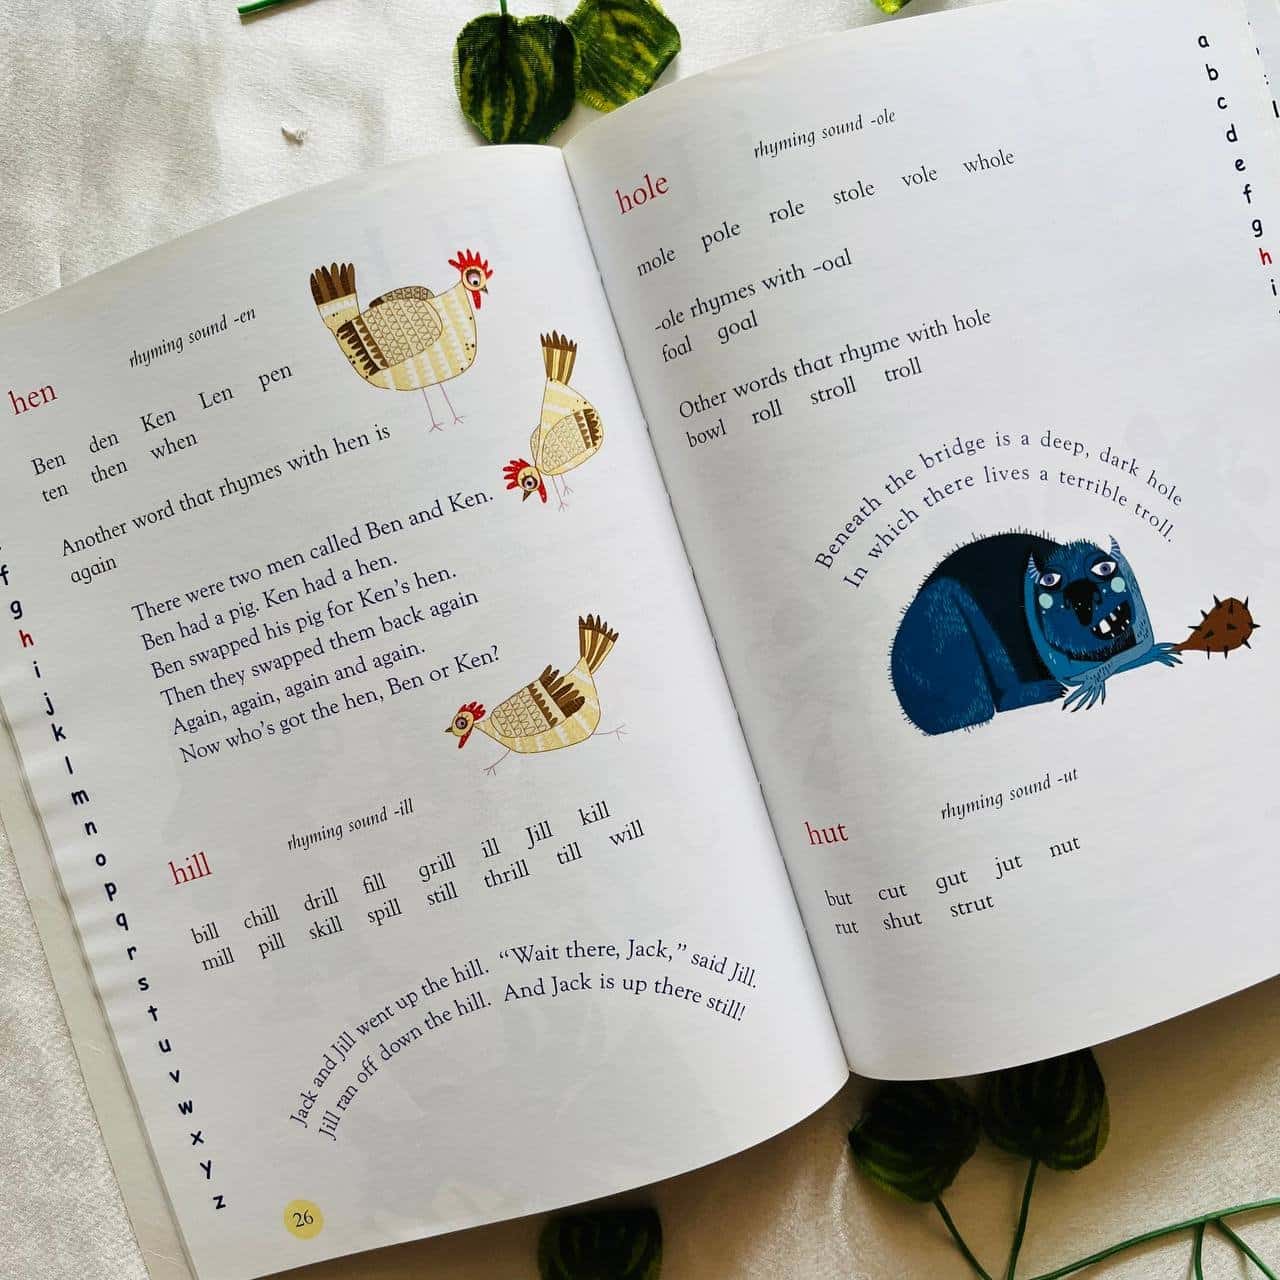 rhyming sound -en
hen
Ben den Ken Len pen
ten then when
Another word that rhymes with hen is
again
There were two men called Ben and Ken.
Ben had a pig. Ken had a hen.
Ben swapped his pig for Ken's hen.
Then they swapped them back again
Again, again, again and again.
Now who's got the hen, Ben or Ken?
rhyming sound -ill
hill
bill chill drill fill grill ill Jill kill
mill pill skill spill still thrill till will
Jack and Jill went up the hill. “Wait there, Jack,” said Jill.
Jill ran off down the hill. And Jack is up there still!
f
g
h
i
j
k
l
m
n
o
p
q
r
s
t
u
v
w
x
y
z
26
rhyming sound -ole
hole
mole pole role stole vole whole
-ole rhymes with -oal
foal goal
Other words that rhyme with hole
bowl roll stroll troll
Beneath the bridge is a deep, dark hole
In which there lives a terrible troll.
rhyming sound -ut
hut
but cut gut jut nut
rut shut strut
a
b
c
d
e
f
g
h
i